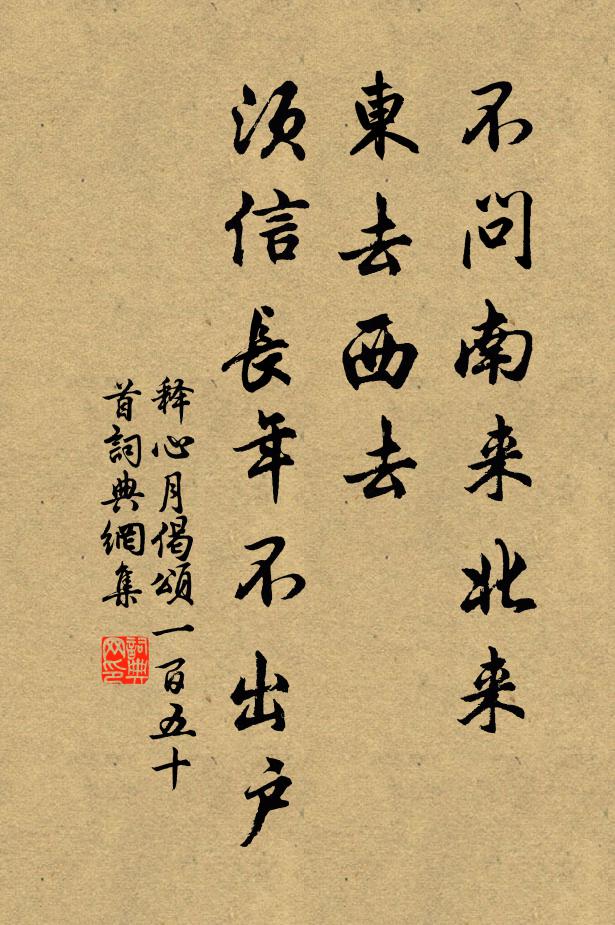 不問南来北来
東去西去
須信長年不出戶
释心月偈頌一百五十
首詞典網集
詞典
网印